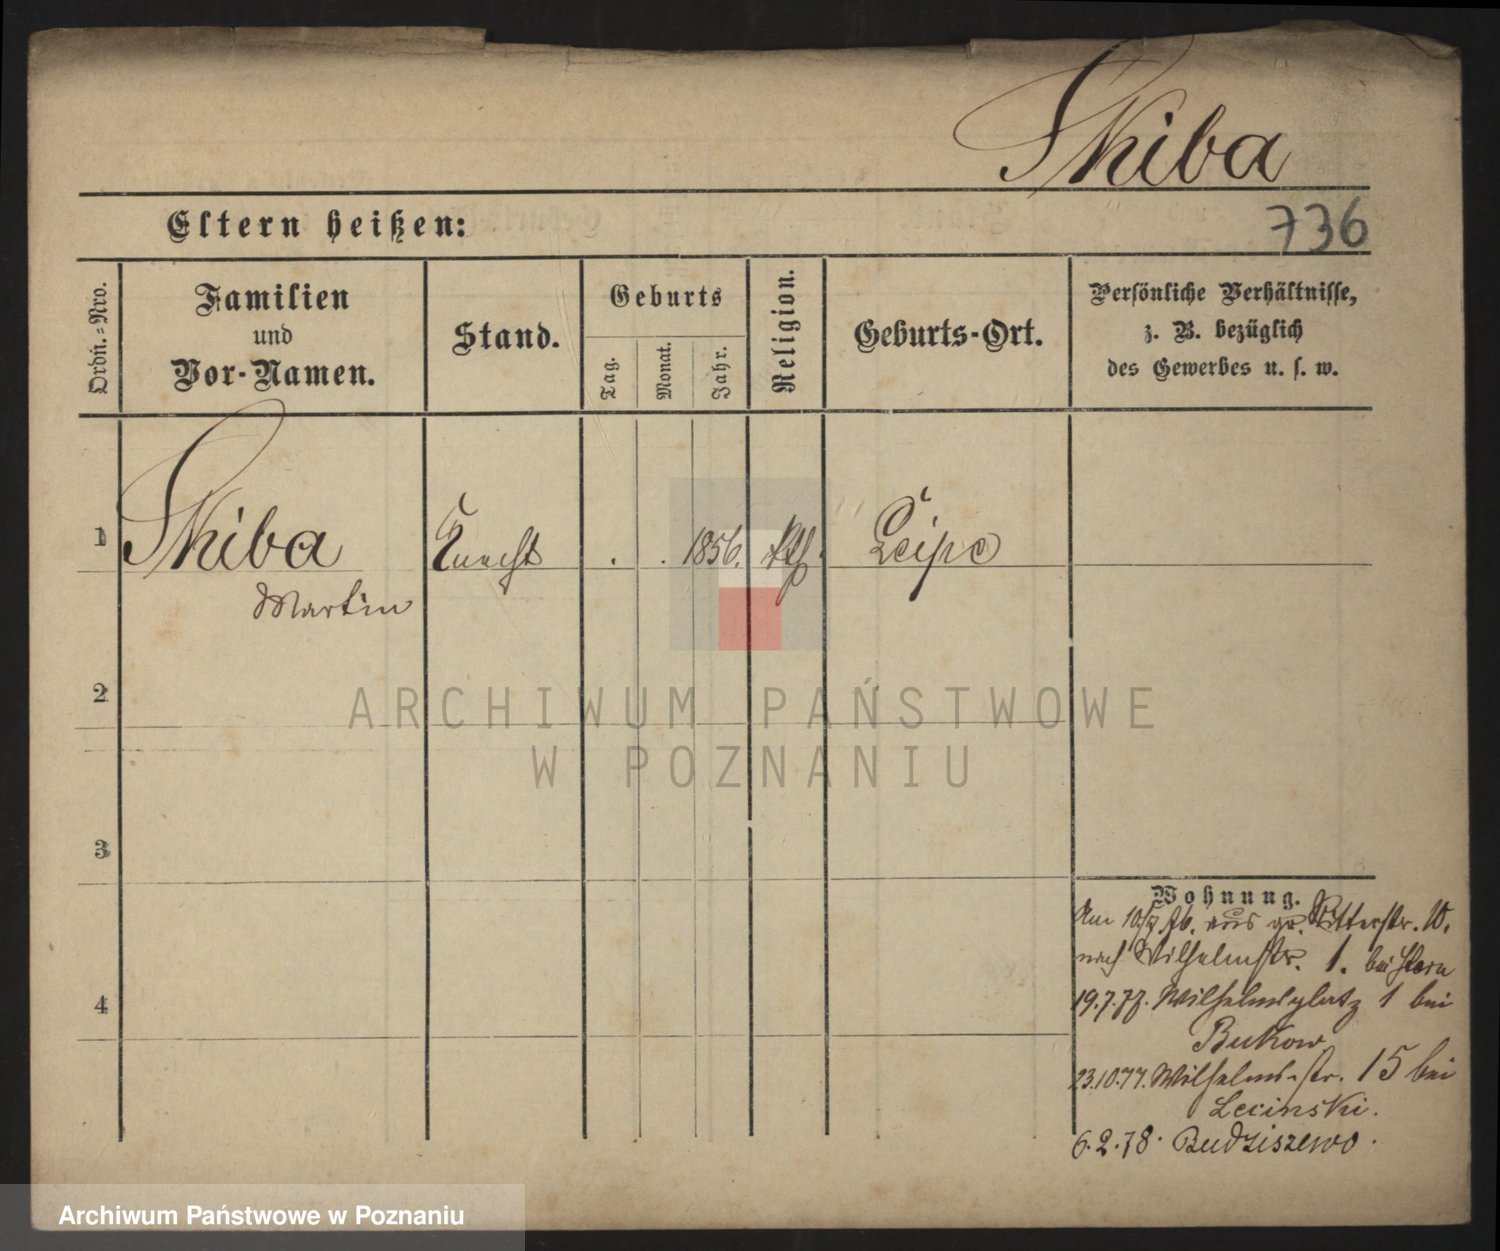 Skiba
Eltern heißen:
736
Ordn.=Nro.
Familien
und
Vor-Namen.
Stand.
Geburts
Tag.
Monat.
Jahr.
Religion.
Geburts-Ort.
Persönliche Verhältnisse,
z. B. bezüglich
des Gewerbes u. s. w.
1 Skiba Knecht . . 1856. kth. Leipe
Martin
2
ARCHIWUM PAŃSTWOWE
W POZNANIU
3
Wohnung.
Am 10/7 76. aus gr. Ritterstr. 10.
nach Wilhelmstr. 1. bei Stern
4
19.7.77. Wilhelmsplatz 1 bei
Bukow
23.10.77. Wilhelmsstr. 15 bei
Lecinski.
6.2.78. Budziszewo.
Archiwum Państwowe w Poznaniu